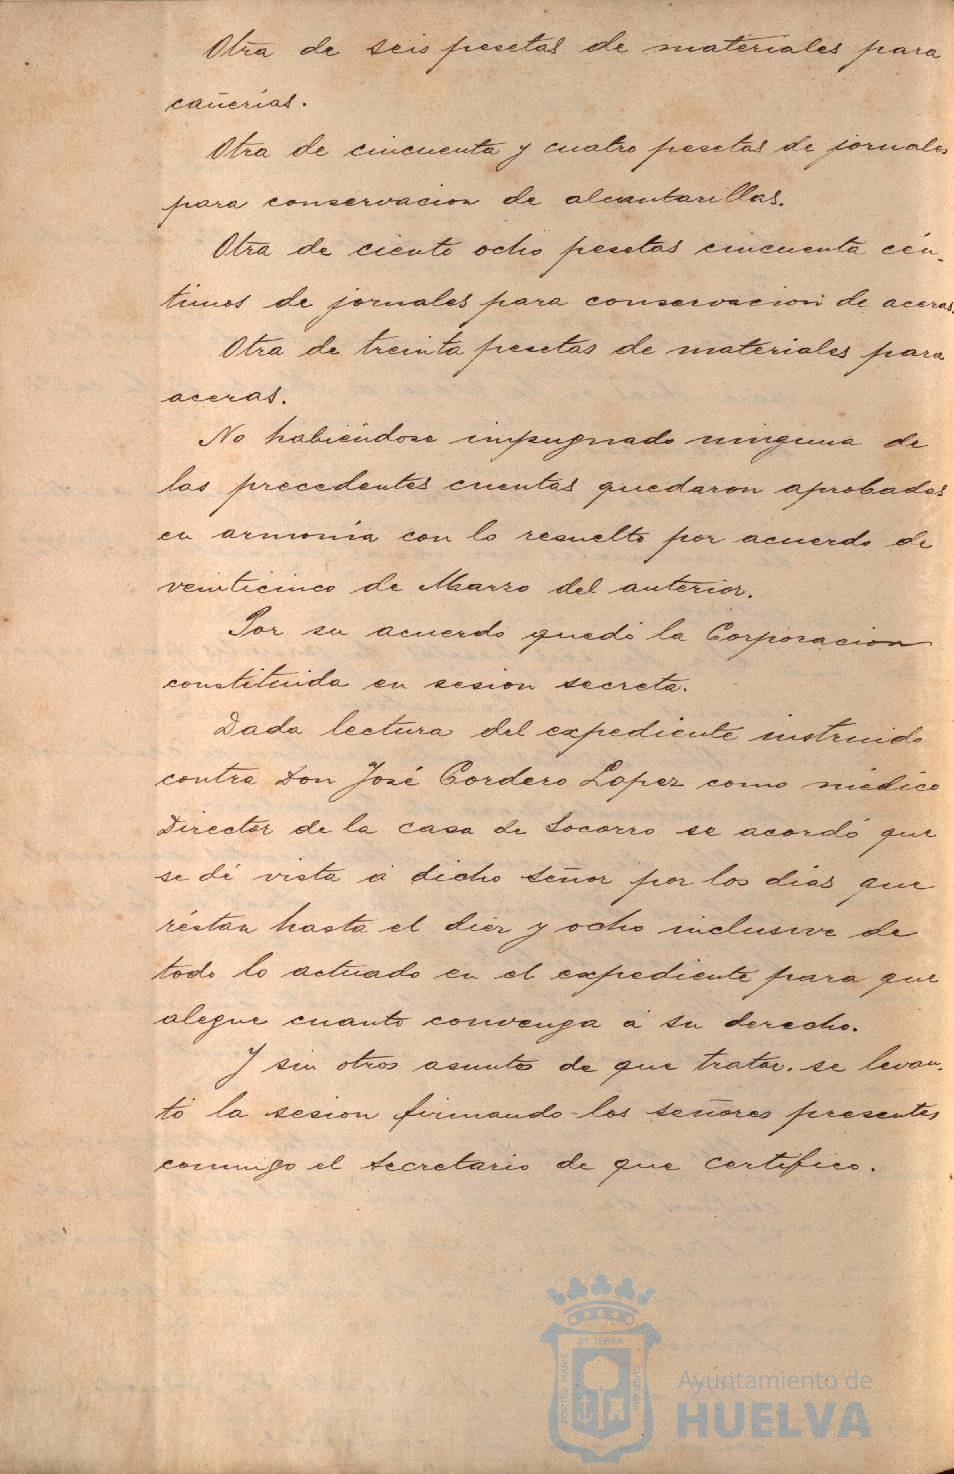 Otra de seis pesetas de materiales para
cañerías.
Otra de cincuenta y cuatro pesetas de jornales
para conservacion de alcantarillas.
Otra de ciento ocho pesetas cincuenta cén-
timos de jornales para conservacion de aceras.
Otra de treinta pesetas de materiales para
aceras.
No habiéndose impugnado ninguna de
las precedentes cuentas quedaron aprobadas
en armonía con lo resuelto por acuerdo de
veinticinco de Marzo del anterior.
Por su acuerdo quedó la Corporacion
constituida en sesion secreta.
Dada lectura del expediente instruido
contra Don José Cordero Lopez como médico
Director de la casa de Socorro se acordó que
se dé vista á dicho señor por los dias que
réstan hasta el diez y ocho inclusive de
todo lo actuado en el expediente para que
alegue cuanto convenga á su derecho.
Y sin otros asuntos de que tratar. se levan-
tó la sesion firmando los señores presentes
conmigo el Secretario de que certifico.
PORTUS MARIS
ET TERRAE
CUSTODIA
Ayuntamiento de
HUELVA